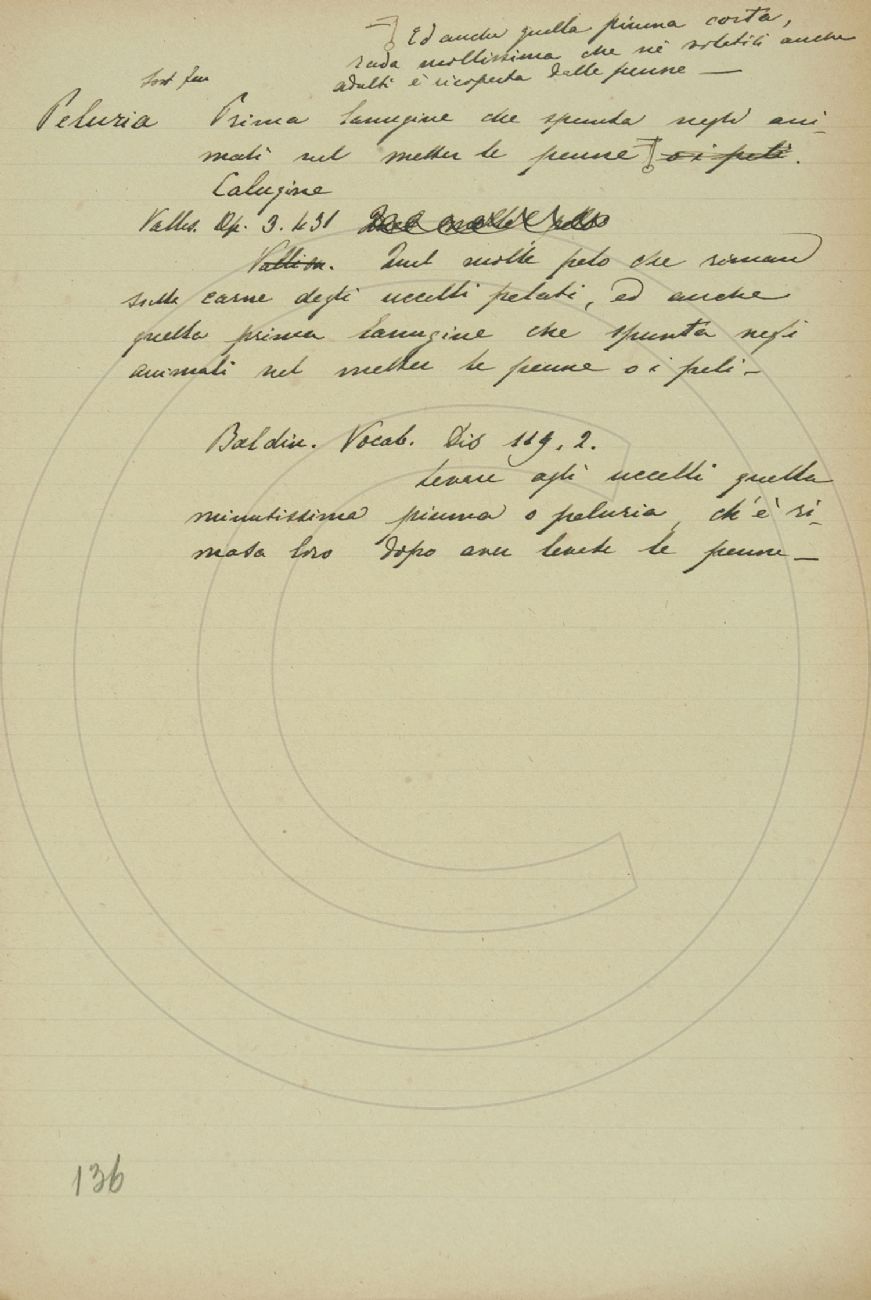 Ed anche quella piuma corta,
rada mollissima che nè volatili anche
adulti è ricoperta dalle penne —
Sost. fem
Peluria Prima lanugine che spunta negli ani-
mali nel metter le penne o i peli.
Calugine
Vallis. Op. 3. 431 Quel molle pelo
Vallisn. Quel molle pelo che riman
sulla carne degli uccelli pelati, ed anche
quella prima lanugine che spunta negli
animali nel metter le penne o i peli —
Baldin. Vocab. Dis 119. 2.
Levare agli uccelli quella
minutissima piuma o peluria, ch'è ri-
masa loro dopo aver levate le penne —
136